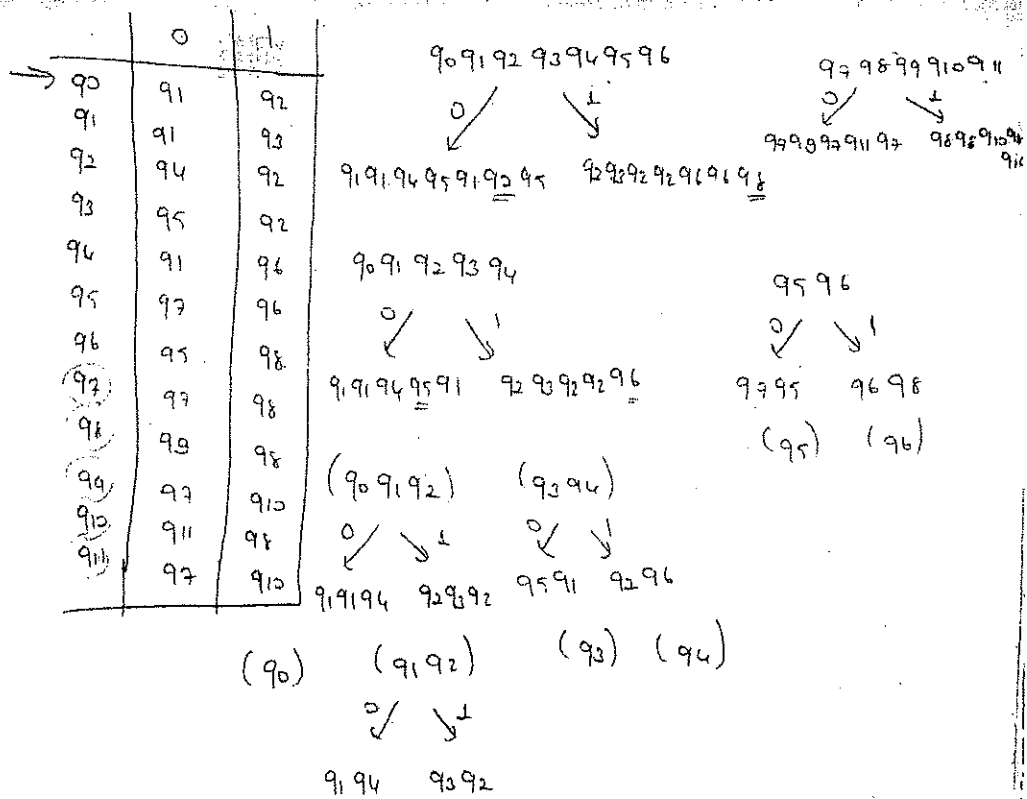 0 1
→ q0 q1 q2
q1 q1 q3
q2 q4 q2
q3 q5 q2
q4 q1 q6
q5 q7 q6
q6 q5 q8
q7 q7 q8
q8 q9 q8
q9 q7 q10
q10 q11 q8
q11 q7 q10
q0 q1 q2 q3 q4 q5 q6
0 1
q1 q1 q4 q5 q1 q7 q5 q2 q3 q2 q2 q6 q6 q8
q7 q8 q9 q10 q11
0 1
q7 q9 q7 q11 q7 q8 q8 q10 q8
q10
q0 q1 q2 q3 q4
0 1
q1 q1 q4 q5 q1 q2 q3 q2 q2 q6
q5 q6
0 1
q7 q5 q6 q8
(q5) (q6)
(q0 q1 q2) (q3 q4)
0 1 0 1
q1 q1 q4 q2 q3 q2 q5 q1 q2 q6
(q0) (q1 q2) (q3) (q4)
0 1
q1 q4 q3 q2